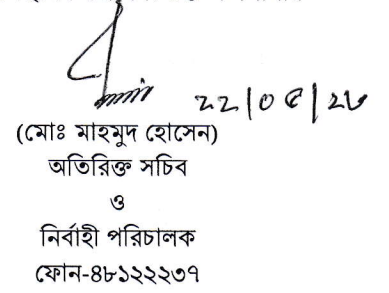 ২২|০৫|২৬
(মোঃ মাহমুদ হোসেন)
অতিরিক্ত সচিব
ও
নির্বাহী পরিচালক
ফোন-৪৮১২২২৩৭